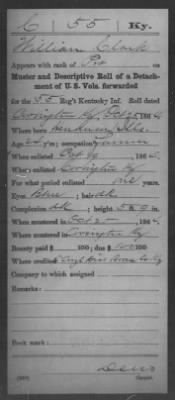 C 55 Ky.
William Clark
Appears with rank of Pvt on
Muster and Descriptive Roll of a Detach-
ment of U. S. Vols. forwarded
for the 55 Reg't Kentucky Inf. Roll dated
Covington Ky Oct 25 1864
Where born
Age y'rs; occupation Farmer
When enlisted Oct 19, 186
Where enlisted Covington Ky
For what period enlisted one years.
Eyes Blue; hair dk
Complexion dk; height 5 ft. in.
When mustered in Oct 25, 186
Where mustered in Covington Ky
Bounty paid $ 100; due $ 100
Where credited
Company to which assigned
Remarks:
Book mark:
Copyist.